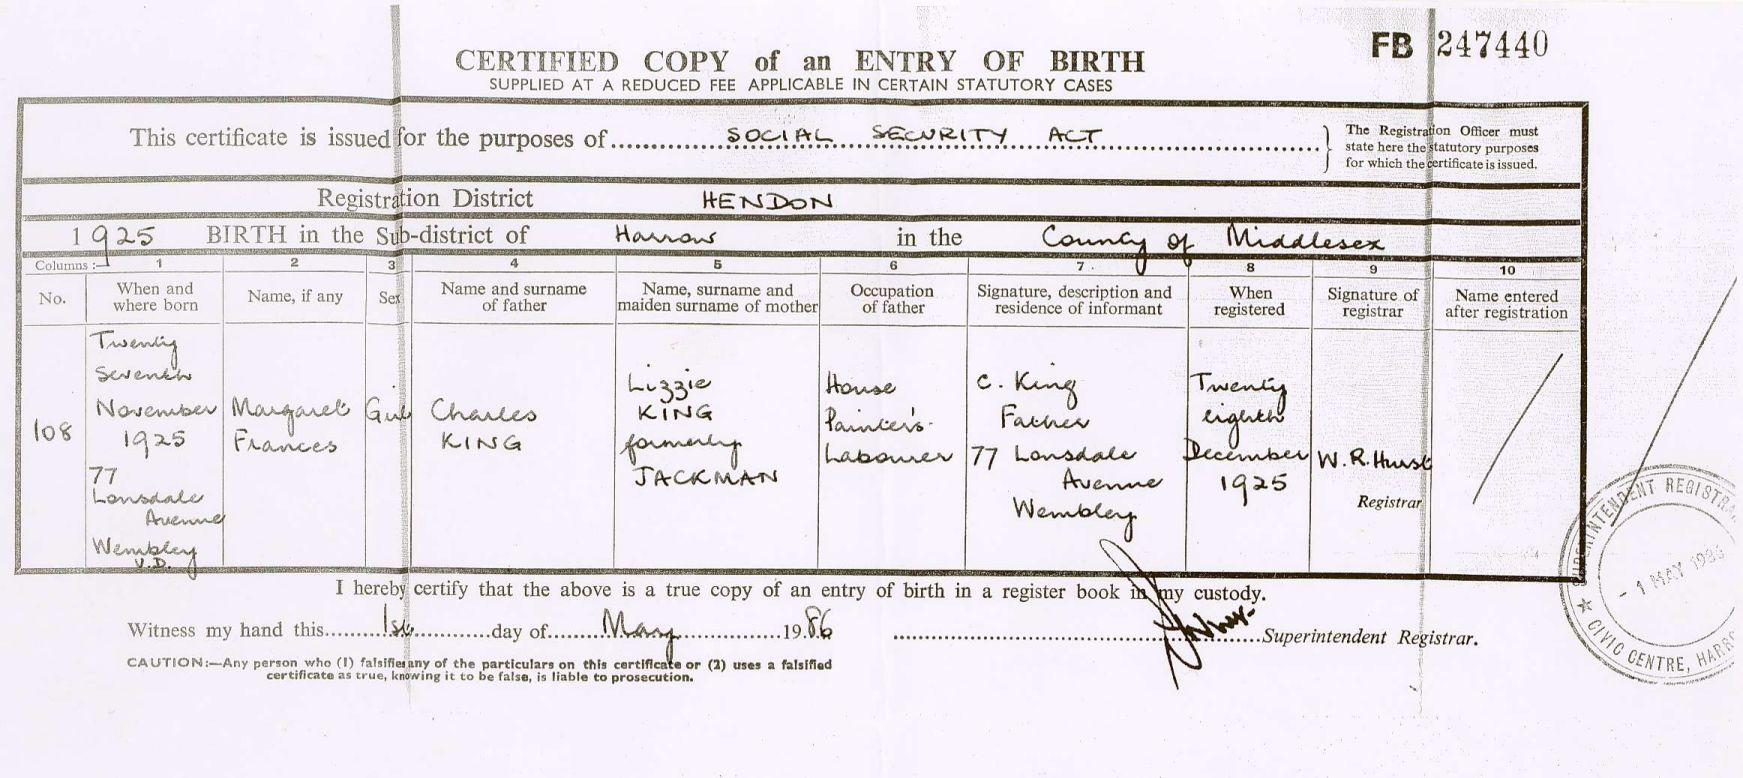 FB 247440
CERTIFIED COPY of an ENTRY OF BIRTH
SUPPLIED AT A REDUCED FEE APPLICABLE IN CERTAIN STATUTORY CASES
This certificate is issued for the purposes of SOCIAL SECURITY ACT
The Registration Officer must
state here the statutory purposes
for which the certificate is issued.
Registration District HENDON
1925 BIRTH in the Sub-district of Harrow in the County of Middlesex
Columns :— 1 2 3 4 5 6 7 8 9 10
No.
When and
where born
Name, if any
Sex
Name and surname
of father
Name, surname and
maiden surname of mother
Occupation
of father
Signature, description and
residence of informant
When
registered
Signature of
registrar
Name entered
after registration
108
Twenty
Seventh
November
1925
77
Lonsdale
Avenue
Wembley
U.D.
Margaret
Frances
Girl
Charles
KING
Lizzie
KING
formerly
JACKMAN
House
Painter's
Labourer
C. King
Father
77 Lonsdale
Avenue
Wembley
Twenty
eighth
December
1925
W.R. Hurst
Registrar
I hereby certify that the above is a true copy of an entry of birth in a register book in my custody.
Witness my hand this 1st day of May 1986
Superintendent Registrar.
CAUTION:—Any person who (1) falsifies any of the particulars on this certificate or (2) uses a falsified
certificate as true, knowing it to be false, is liable to prosecution.
SUPERINTENDENT REGISTRA
- 1 MAY
★ CIVIC CENTRE, HARRO